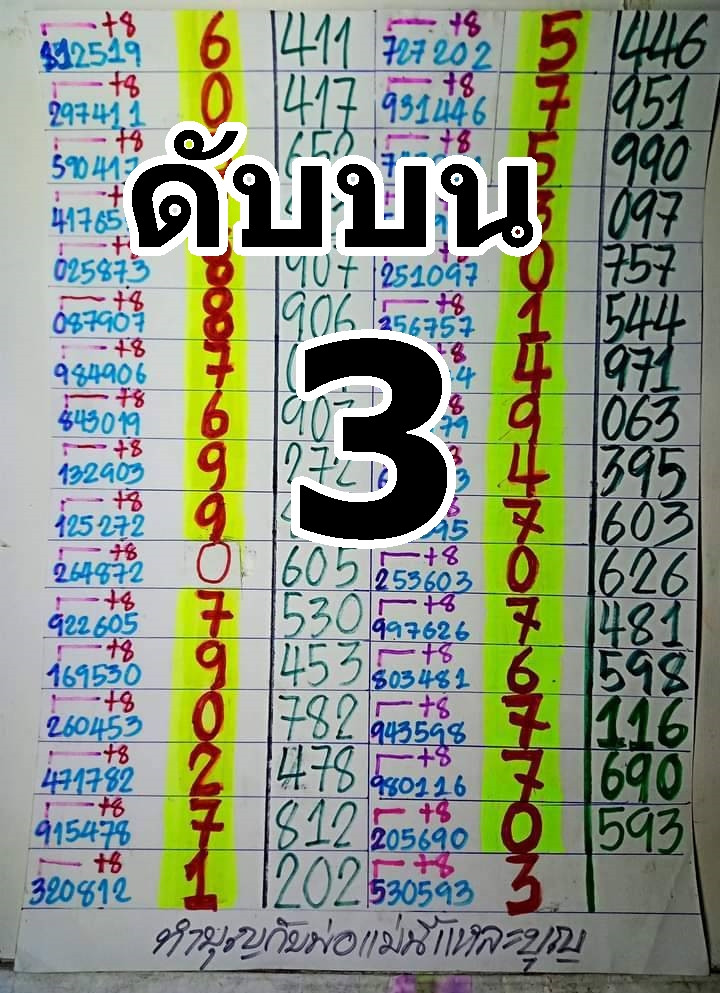 +8 +8
312519 6 411 727202 5 446
+8 +8
297411 0 417 931446 7 951
+8
590417 5 990
ดับบน
41765 097
025873 8 907 251097 0 757
+8 +8
087907 8 906 356757 1 544
+8
984906 7 4 971
+8
843019 6 907 9 063
+8
132903 9 272 4 395
3
+8
125272 9 7 603
+8 +8
264872 0 605 253603 0 626
+8 +8
922605 7 530 997626 7 481
+8 +8
169530 9 453 803481 6 598
+8 +8
260453 0 782 943598 7 116
+8 +8
471782 2 478 980116 7 690
+8 +8
915478 7 812 205690 0 593
+8 +8
320812 1 202 530593 3
ทำบุญกับพ่อแม่นี่แหละบุญ